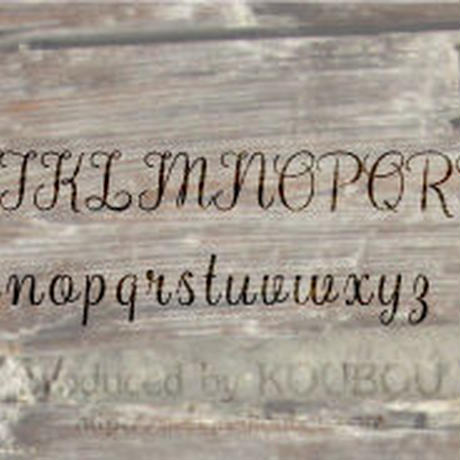 JKLMNOPQR
nopqrstuvwxyz
Produced by KOUBOU